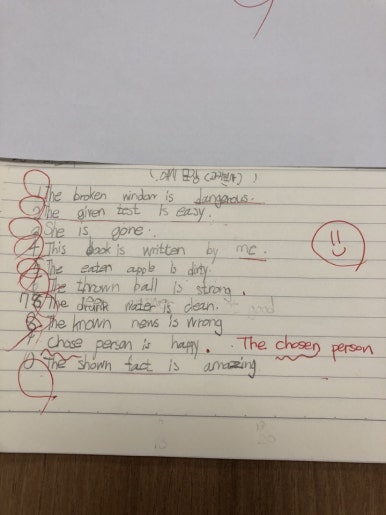 ( 예시 문장 (과거분사) )
1 The broken window is dangerous.
2 The given test is easy.
3 She is gone.
4 This book is written by me.
The eaten apple is dirty.
The thrown ball is strong.
78 The drunk water is clean.
8 The known news is wrong
9 Chose person is happy. The chosen person
10 The shown fact is amazing